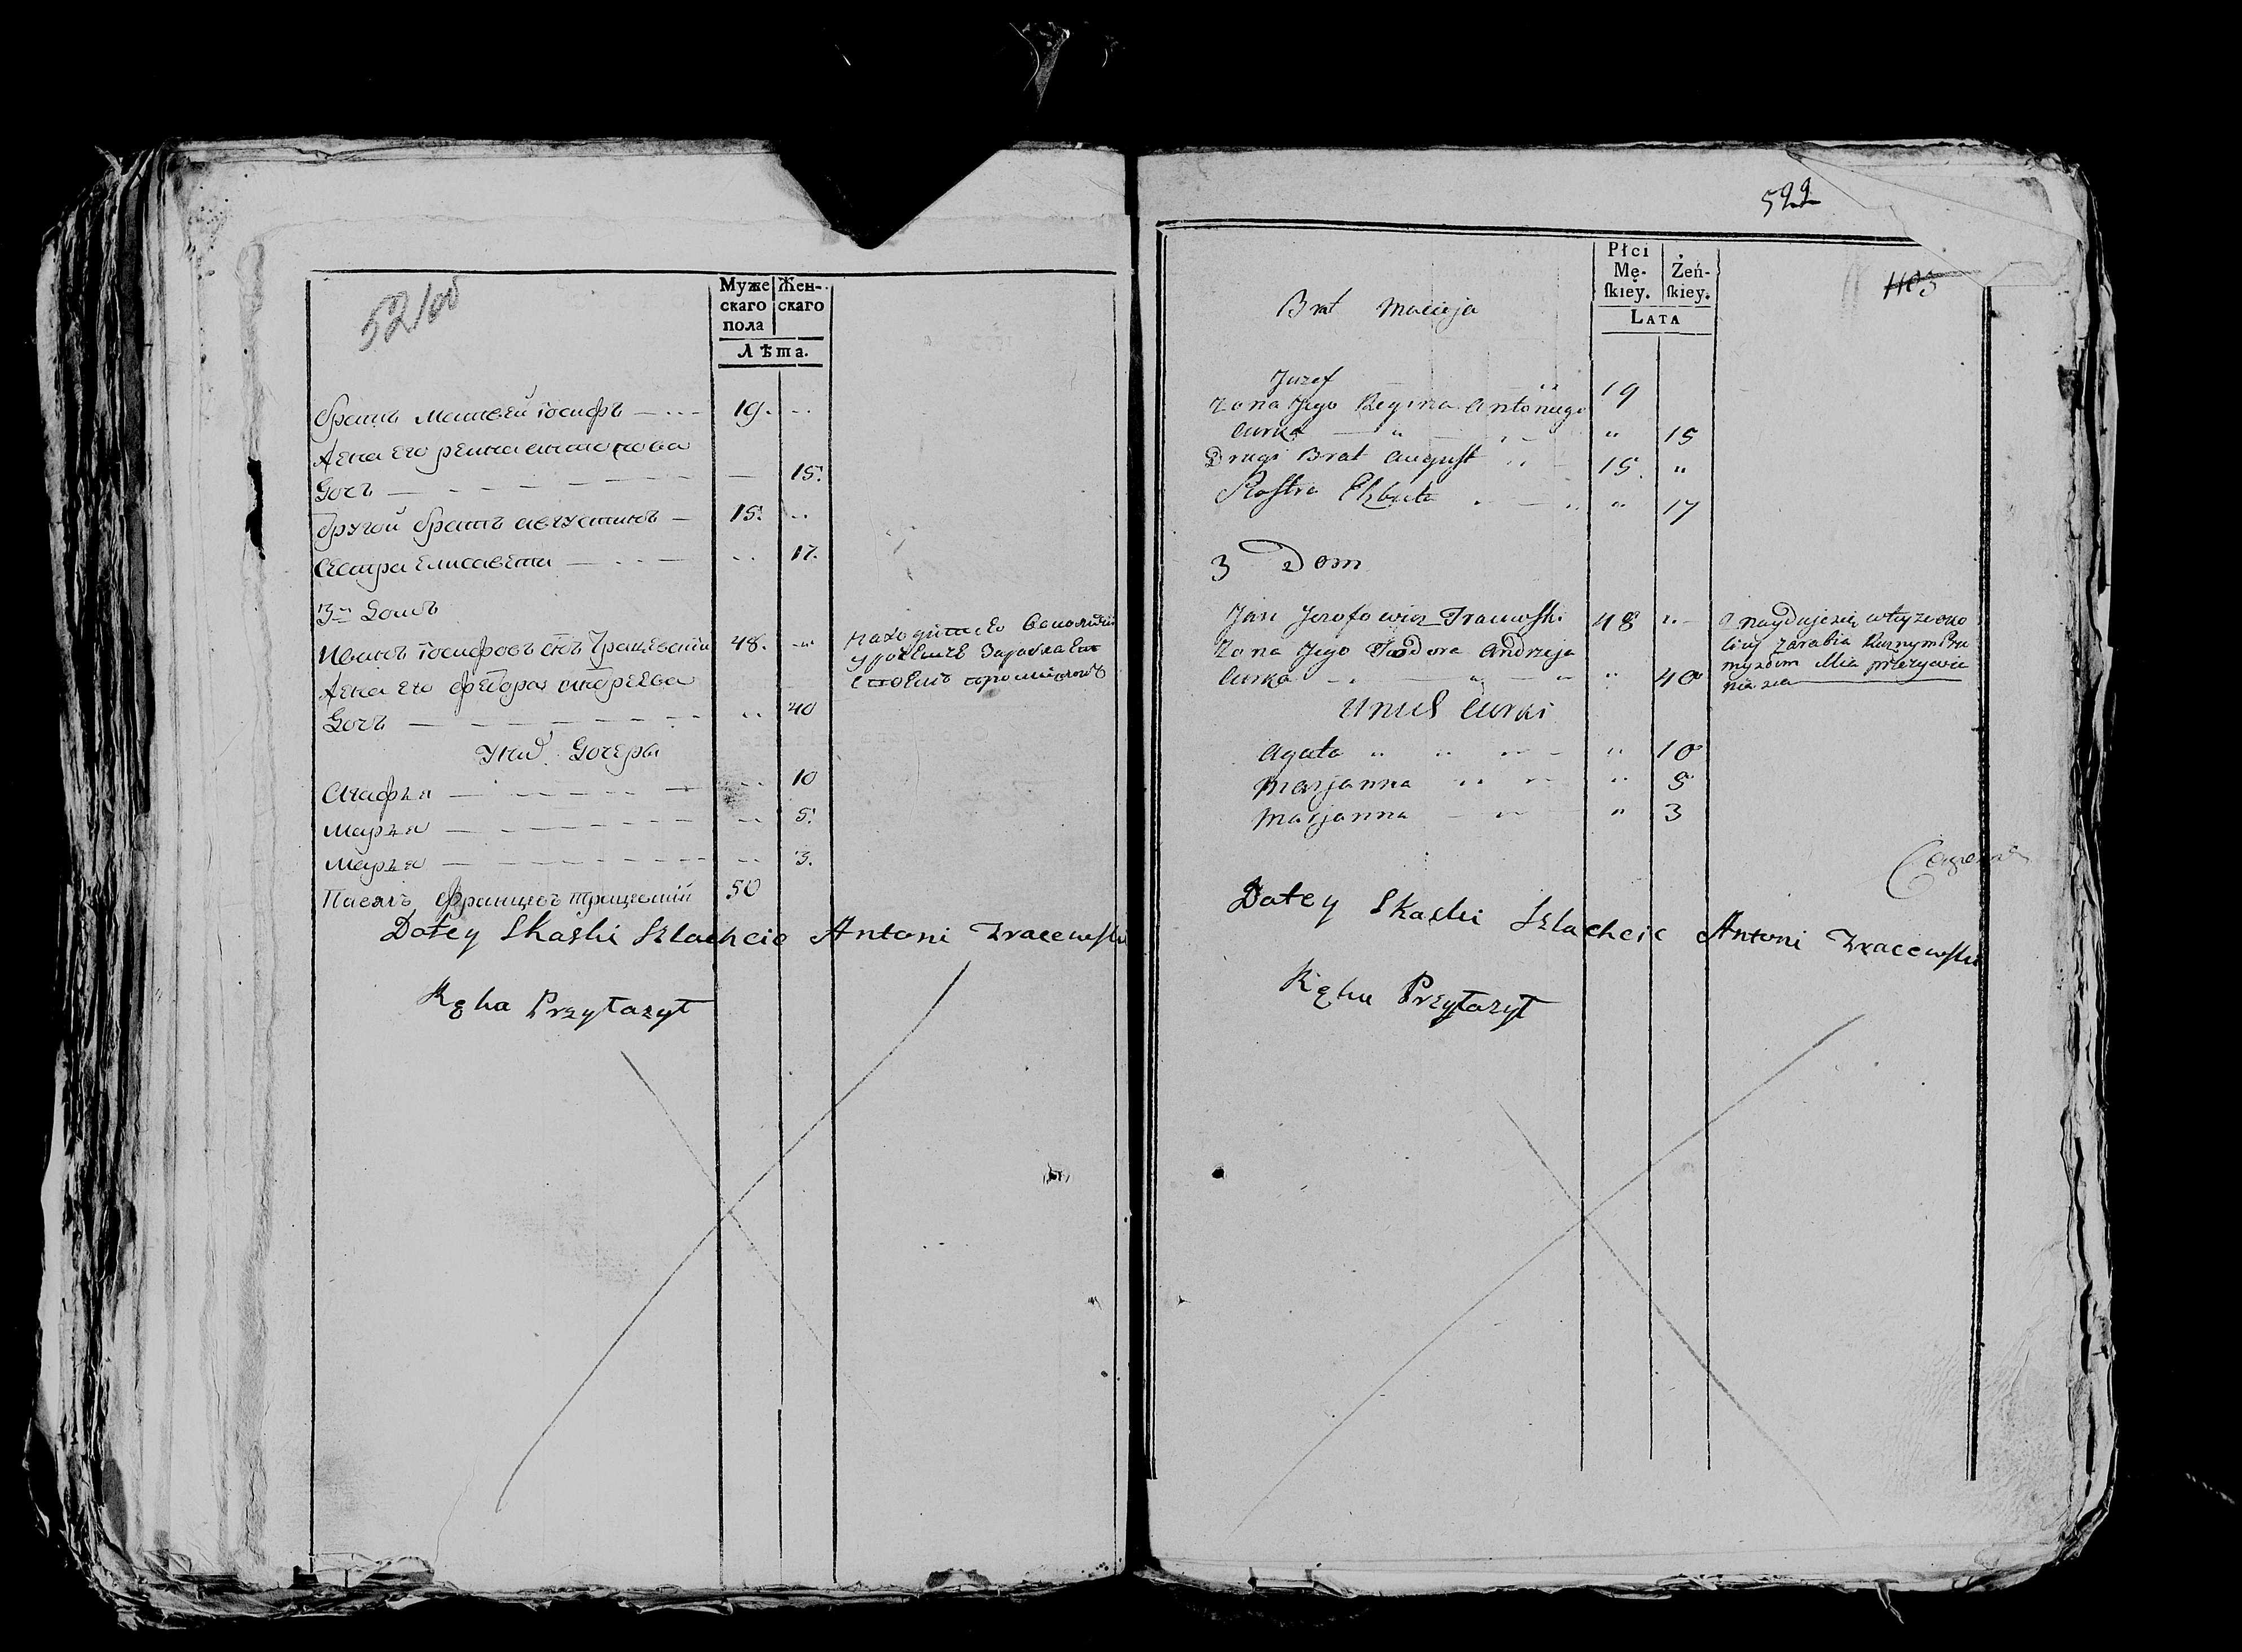 52/об
Муже
скаго
пола
Жен-
скаго
Лѣта.
братъ Матвей Іосифъ 19.
Жена его регина антонова
Дочь 15.
Другой братъ августинъ 15.
Сестра Елисавета 17.
3й Домъ
Иванъ Іосифовъ сынъ Трацевский 48.
Жена его федора андреева
Дочь 40
У них Дочеры
Агафья 10
Марья 5.
Марья 3.
Павелъ Францевъ Трацевский 50
находится Зарабляет
своемъ
Dotey Skaski Szlachcic Antoni Tracewski
Ręka Przyłazył
522
1103
Płci
Mę-
skiey.
Żeń-
skiey.
LATA
Brat Macieja
Juzef 19
Zona Jego Regina Antoniego
Curka " " 15
Drugi Brat August 15. "
Siostra Elzbieta " 17
3 Dom
Jan Jozofowicz Tracewski 48 "
Zona Jego Teodora Andrzeja
Curka " " 40
U nich Curki
Agata " " " 10
Marjanna " " " 5
Marjanna " " 3
Znayduje się w tey że oko
licy zarabia Ruznym Prze
mysłem dla przezywie
nia sia
Dotey Skaski Szlachcic Antoni Tracewski
Ręku Przyłazył